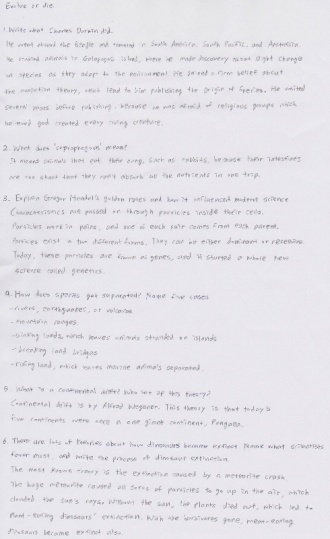 Evolve or die.
1. Write what Charles Darwin did.
He went aboard the Beagle and in South America, South Pacific, and Australia.
He studied animals in Galapagos island, where he made discovery about slight changes
in species as they adapt to the environment. He gained a firm belief about
the evolution theory, which lead to him publishing the Origin of Species. He waited
several years before publishing, because he was afraid of religious groups which
believed god created every living creature.
2. What does "coprophagous" mean?
It means animals that eat their dung, such as rabbits, because their intestines
are too short that they can't absorb all the nutrients in one trip.
3. Explain Gregor Mendel's golden rules and how it influenced modern science
Characteristics are passed on through particles inside their cells.
Particles work in pairs, and one of each pair comes from each parent.
Particles exist in two different forms. They can be either dominant or recessive.
Today, these particles are known as genes, and it started a whole new
science called genetics.
4. How does species get separated? Name five cases
- rivers, earthquakes, or volcanos
- mountain ranges
- sinking lands, which leaves animals stranded on islands
- breaking land bridges
- rising land, which makes marine animals separated.
5. What is a continental drift? Who set up this theory?
Continental drift is by Alfred Wegener. This theory is that today's
five continents were once in one giant continent, Pangaea.
6. There are lots of theories about how dinosaurs became extinct. Name what scientists
favor most, and write the process of dinosaur extinction.
The most known theory is the extinction caused by a meteorite crash
The huge meteorite caused all sorts of particles to go up in the air, which
clouded the sun's rays. Without the sun, the plants died out, which led to
plant-eating dinosaurs' extinction. With the herbivores gone, meat-eating
dinosaurs became extinct also.